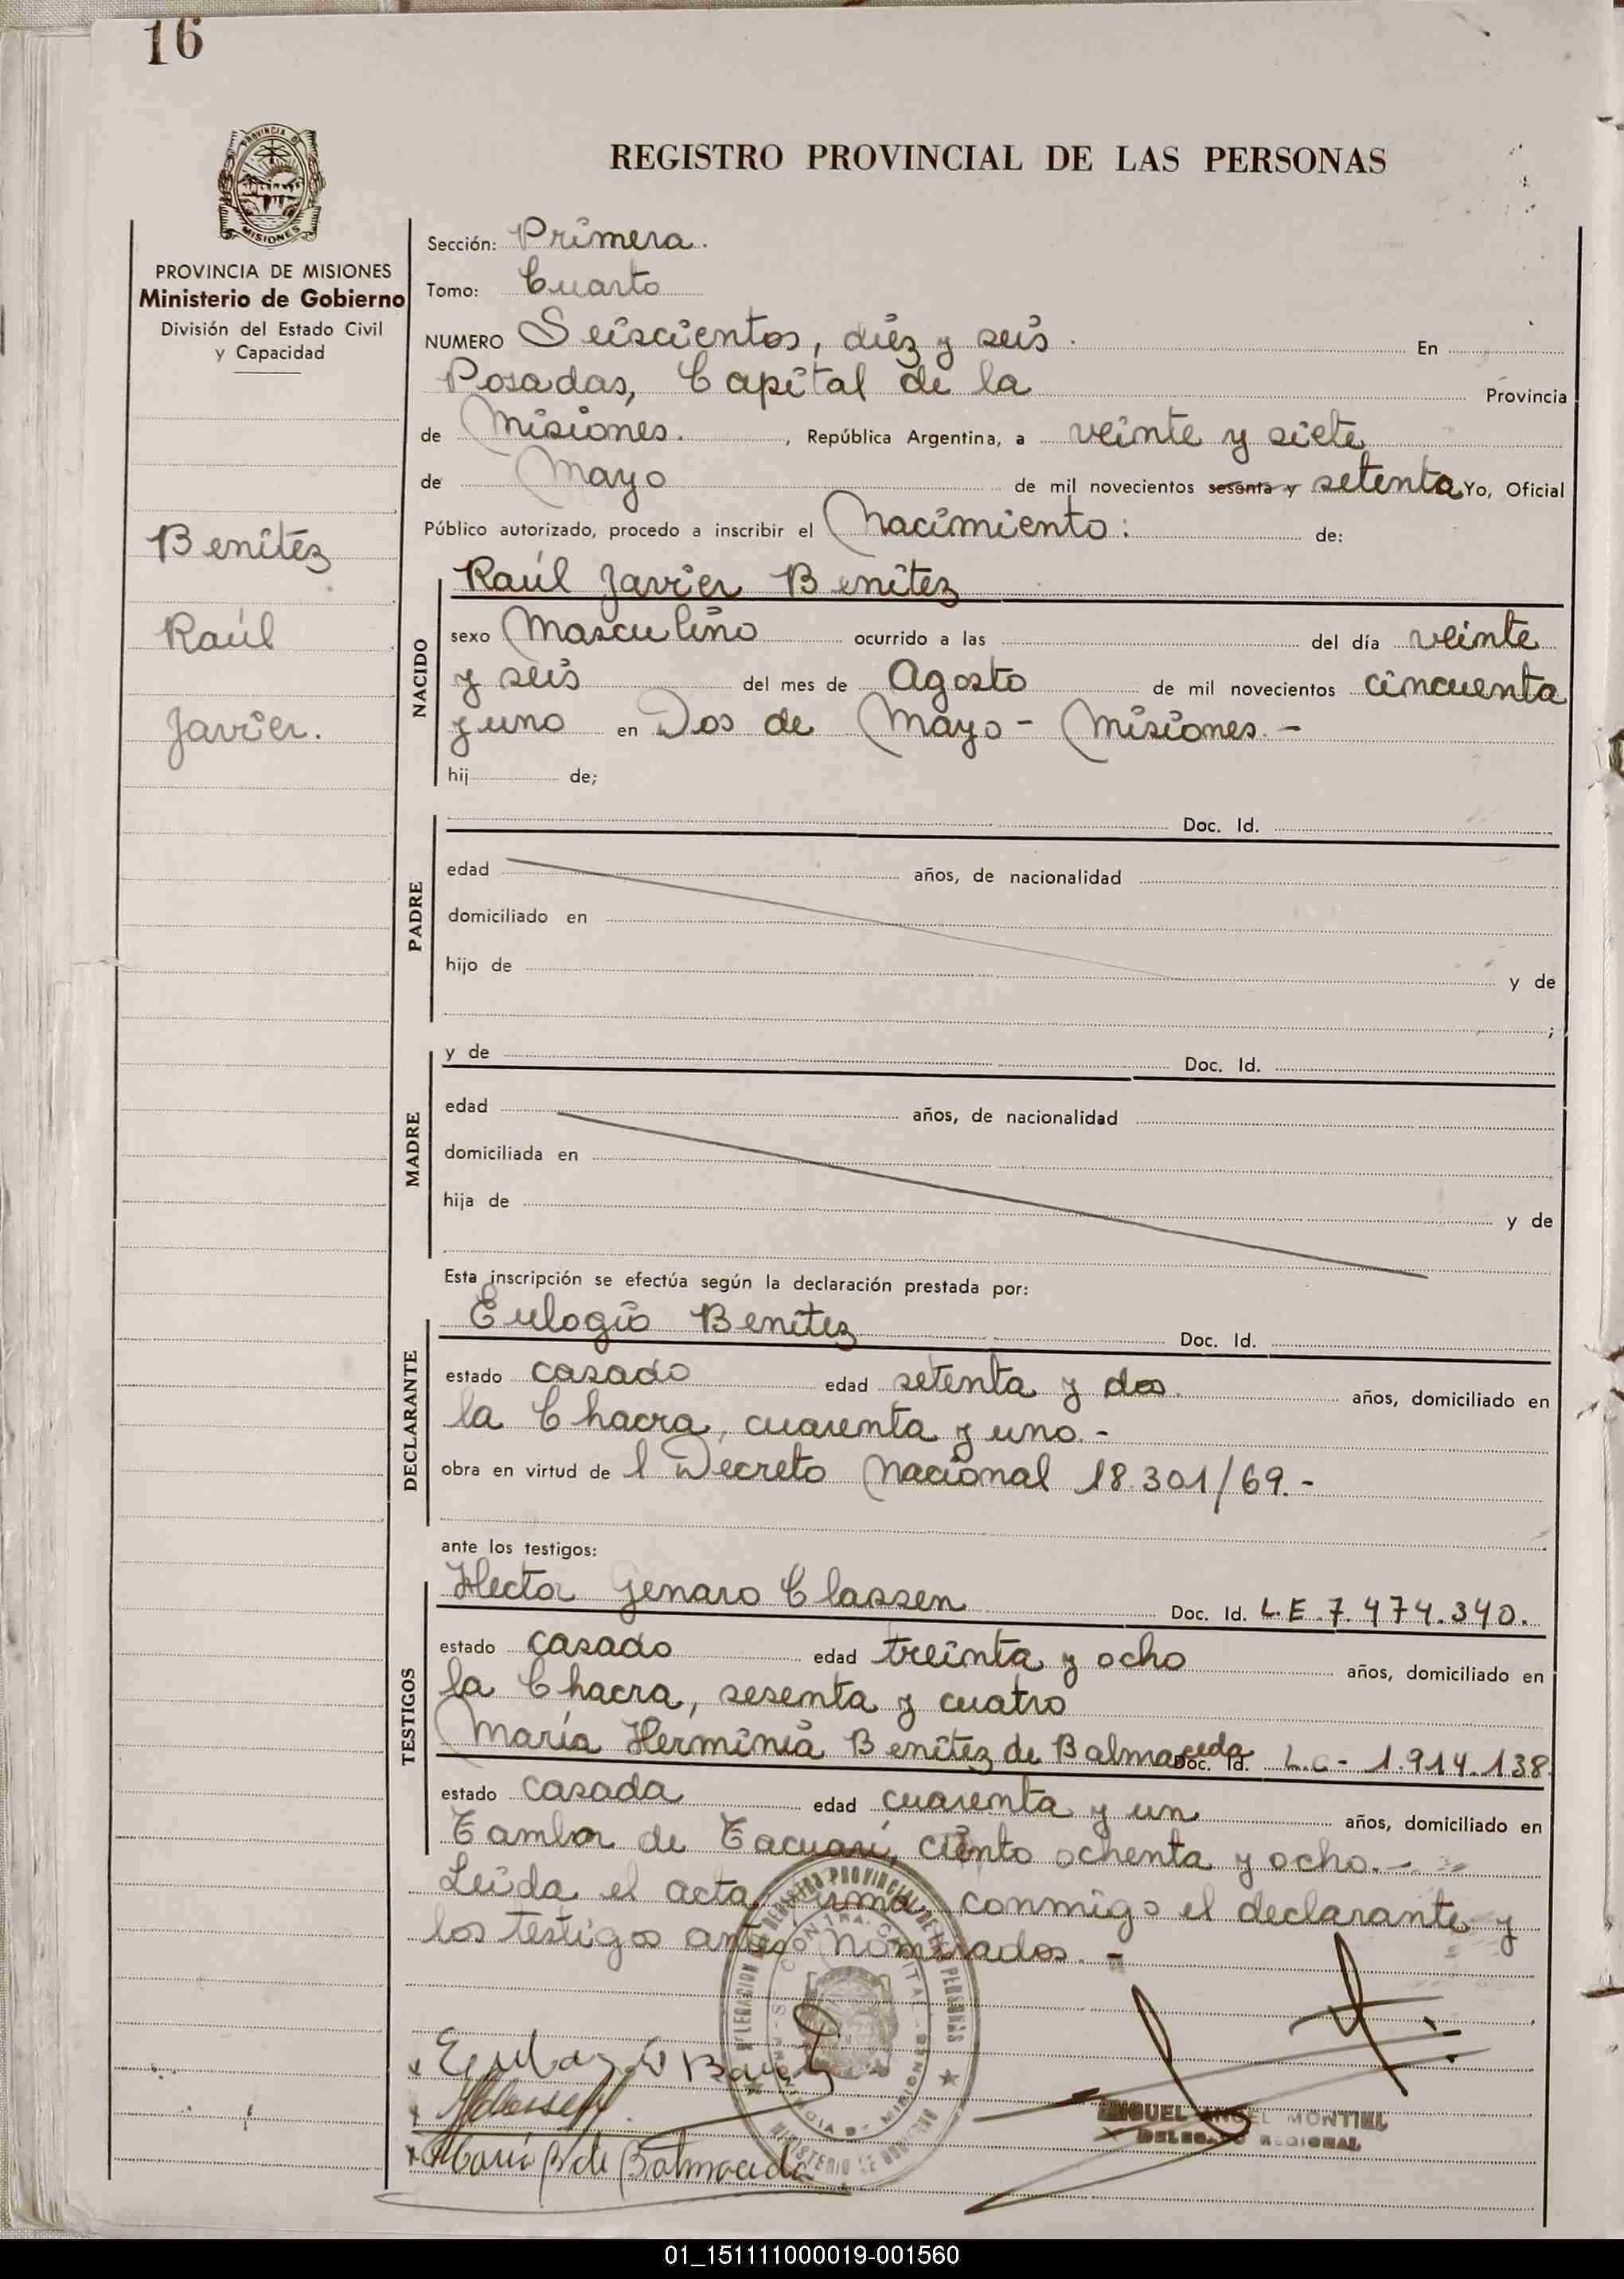 16
PROVINCIA DE
MISIONES
PROVINCIA DE MISIONES
Ministerio de Gobierno
División del Estado Civil
y Capacidad
Benítez
Raúl
Javier.
REGISTRO PROVINCIAL DE LAS PERSONAS
Sección: Primera.
Tomo: Cuarto
NUMERO Seiscientos, diez y seis. En
Posadas, Capital de la Provincia
de Misiones. , República Argentina, a veinte y siete
de Mayo de mil novecientos sesenta y setenta Yo, Oficial
Público autorizado, procedo a inscribir el Nacimiento: de:
NACIDO
Raúl Javier Benítez
sexo Masculino ocurrido a las del día veinte
y seis del mes de Agosto de mil novecientos cincuenta
y uno en Dos de Mayo - Misiones. -
hij de;
PADRE
Doc. Id.
edad años, de nacionalidad
domiciliado en
hijo de y de
;
MADRE
y de Doc. Id.
edad años, de nacionalidad
domiciliada en
hija de y de
Esta inscripción se efectúa según la declaración prestada por:
DECLARANTE
Eulogio Benítez Doc. Id.
estado casado edad setenta y dos. años, domiciliado en
la Chacra, cuarenta y uno. -
obra en virtud de l Decreto Nacional 18.301/69. -
ante los testigos:
TESTIGOS
Hector Genaro Classen Doc. Id. L.E. 7.474.340.
estado casado edad treinta y ocho años, domiciliado en
la Chacra, sesenta y cuatro
María Herminia Benítez de Balmaceda Doc. Id. L.C - 1.914.138
estado casada edad cuarenta y un años, domiciliado en
Tambor de Tacuarí, ciento ochenta y ocho. -
Leída el acta, firma, conmigo el declarante y
los testigos antes nominados. -
REGISTRO PROVINCIAL DE LAS PERSONAS
MINISTERIO DE GOBIERNO
x Eulogio
x HClassen
x María B de Balmaceda
MIGUEL ANGEL MONTIEL
DELEGADO REGIONAL
01_151111000019-001560